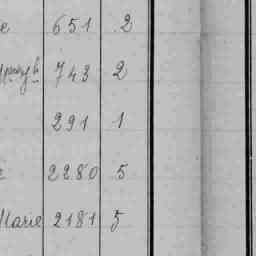 e 651 2
743 2
291 1
2280 5
Marie 2181 5